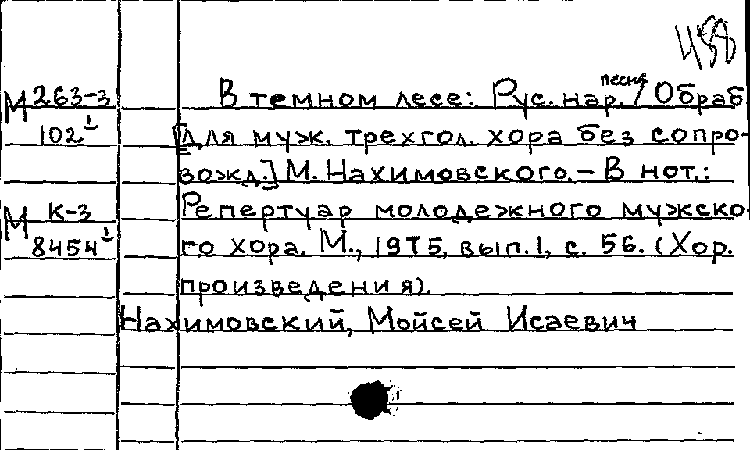 458
песня
М 263-3 В темном лесе: Рус. нар. / Обраб
102¹ [для муж. трехгол. хора без сопро-
вожд.] М. Нахимовского. – В нот.:
М К-3 Репертуар молодежного мужско-
8454¹ го хора. М., 1975, вып. 1, с. 56. (Хор.
произведения).
Нахимовский, Мойсей Исаевич